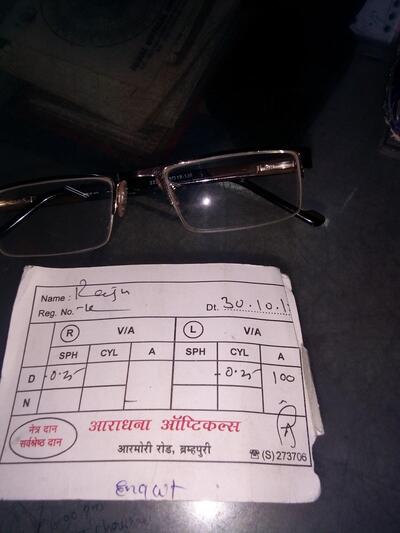 Name : Raju
Reg. No. Dt. 30.10.1
R V/A L V/A
SPH CYL A SPH CYL A
D -0.25 -0.25 100
N
नेत्र दान
सर्वश्रेष्ठ दान
आराधना ऑप्टिकल्स
आरमोरी रोड, ब्रम्हपुरी
☎ (S) 273706